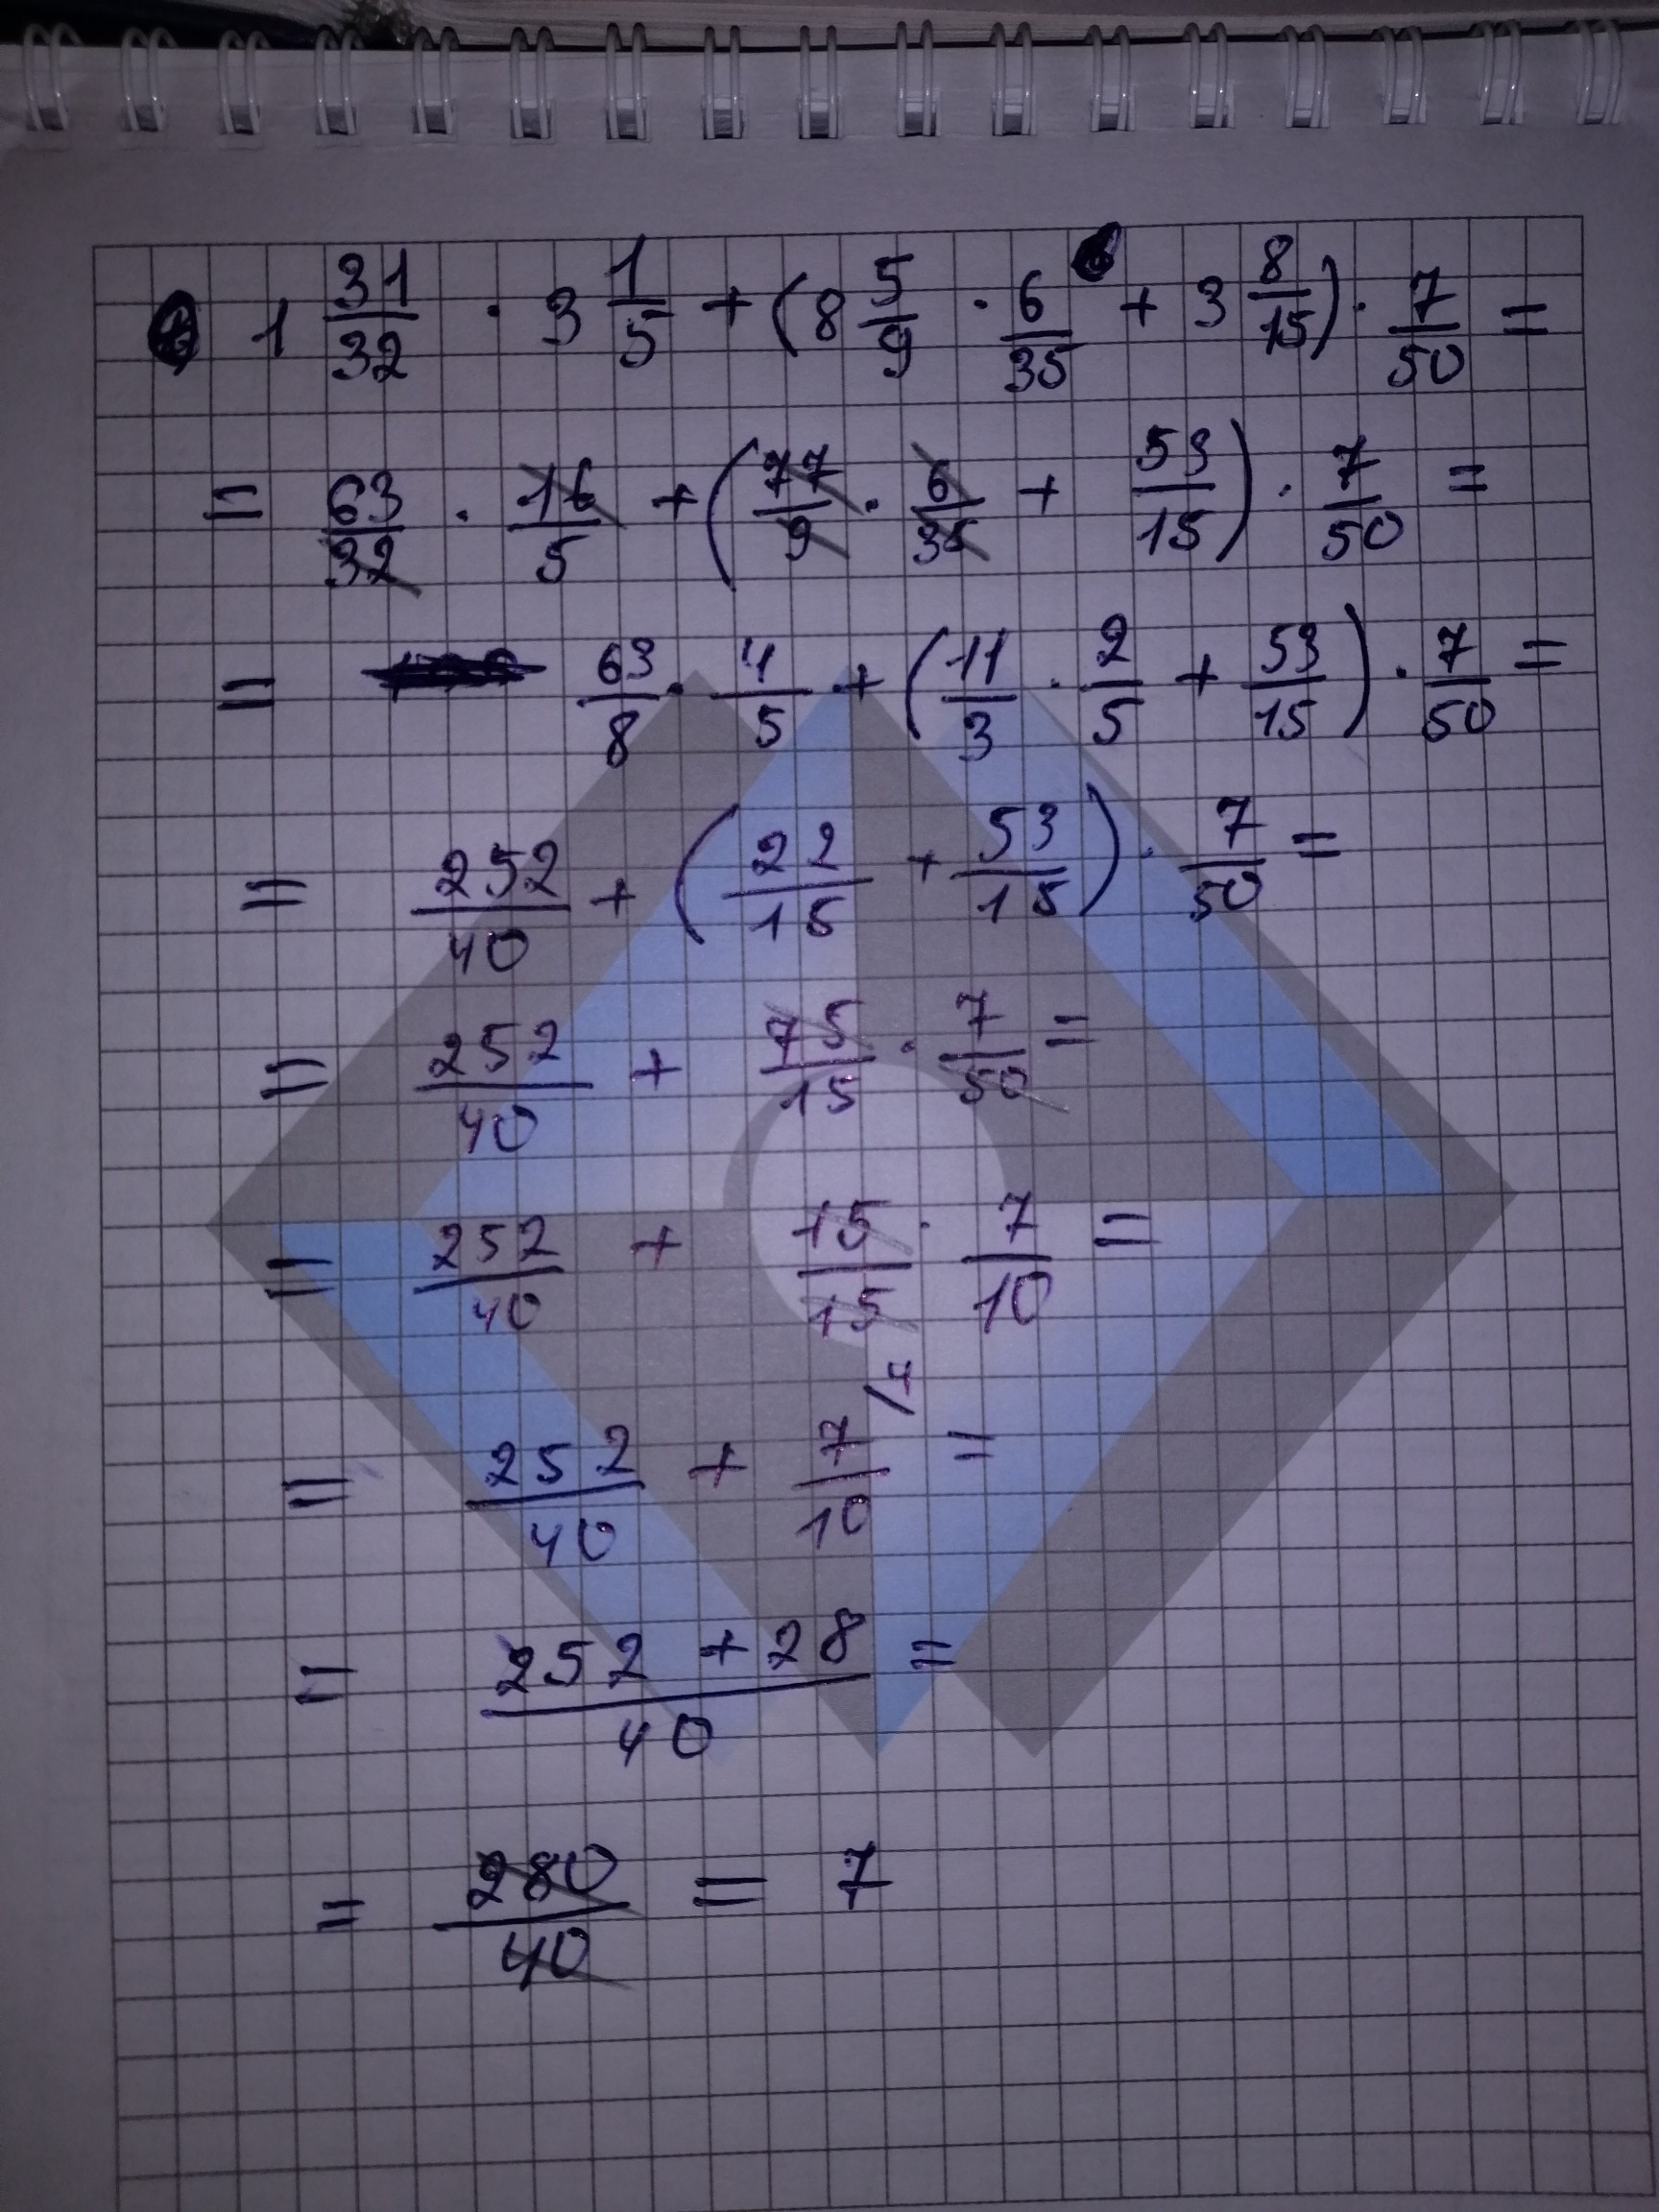 1 31/32 · 3 1/5 + (8 5/9 · 6/35 + 3 8/15) · 7/50 =
= 63/32 · 16/5 + (77/9 · 6/35 + 53/15) · 7/50 =
= 63/8 · 4/5 + (11/3 · 2/5 + 53/15) · 7/50 =
= 252/40 + (22/15 + 53/15) · 7/50 =
= 252/40 + 75/15 · 7/50 =
= 252/40 + 15/15 · 7/10 =
= 252/40 + 7/10 /4 =
= 252 + 28/40 =
= 280/40 = 7